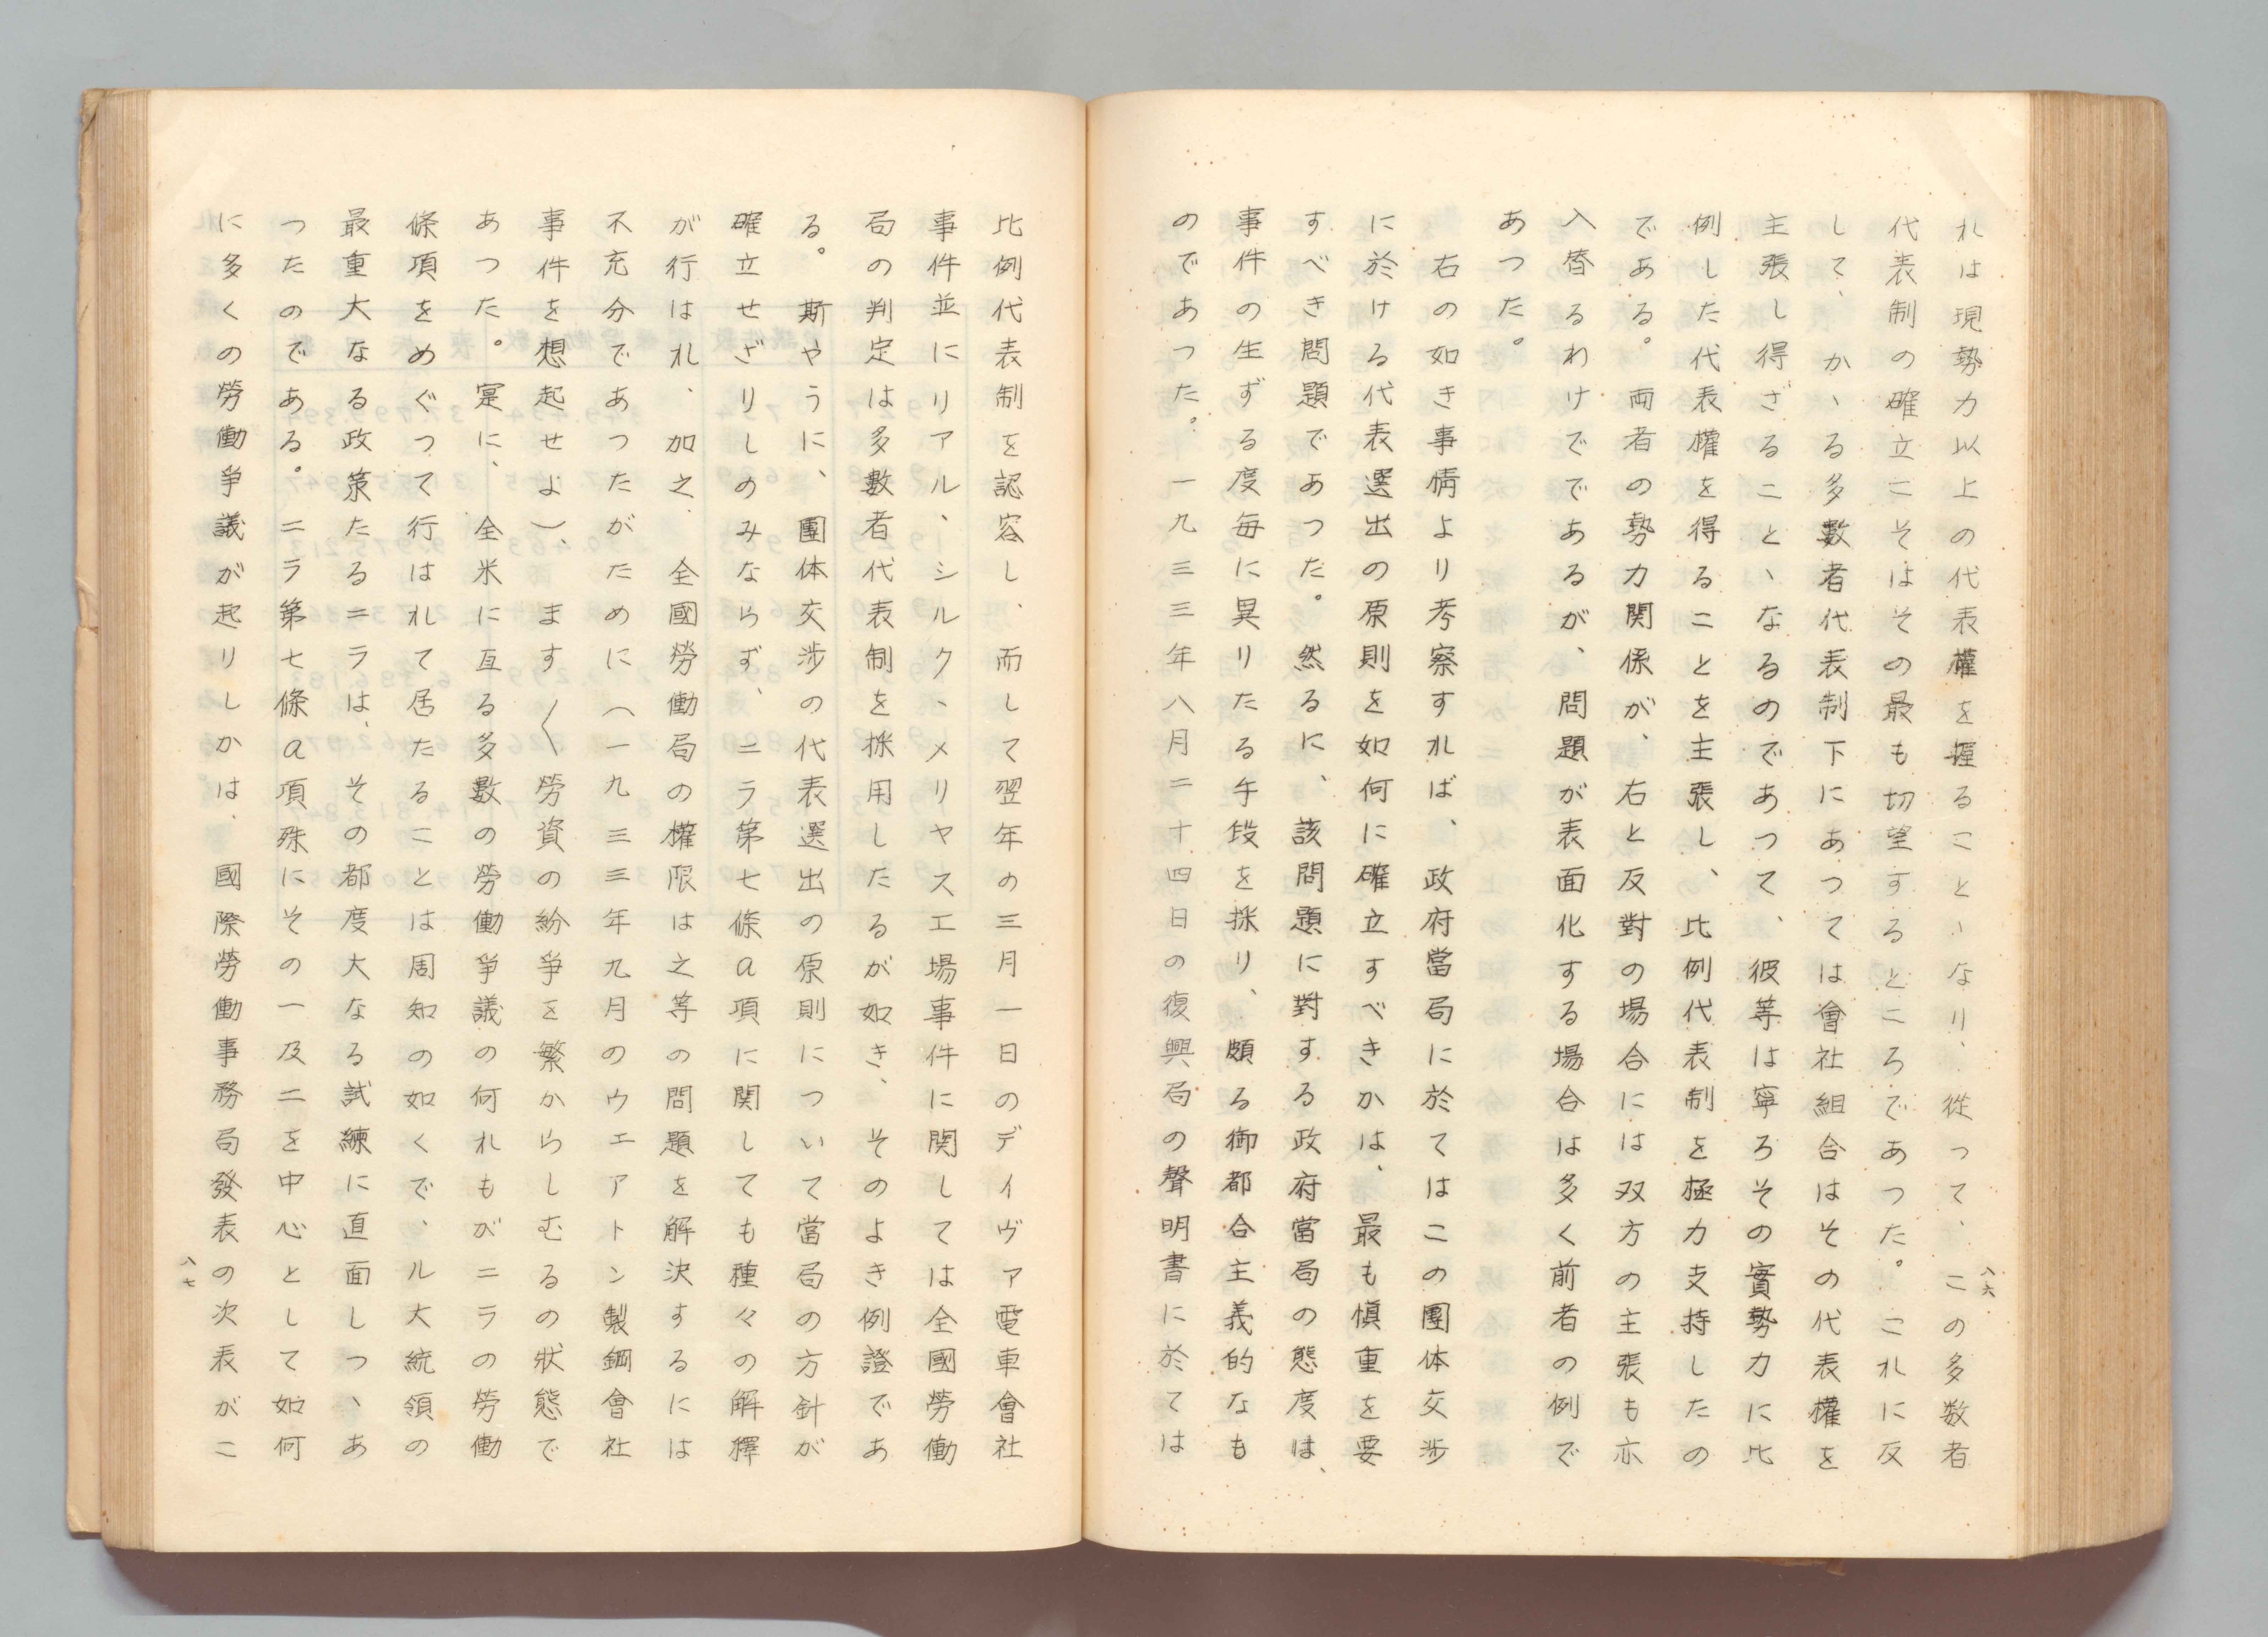 八六
れは現勢力以上の代表權を握ることゝなり、従って、この多数者
代表制の確立こそはその最も切望するところであった。これに反
して、かゝる多數者代表制下にあつては會社組合はその代表權を
主張し得ざることゝなるのであつて、彼等は寧ろその實勢力に比
例した代表權を得ることを主張し、比例代表制を極力支持したの
である。両者の勢力関係が、右と反對の場合には双方の主張も亦
入替るわけであるが、問題が表面化する場合は多く前者の例で
あつた。
右の如き事情より考察すれば、政府當局に於てはこの團体交渉
に於ける代表選出の原則を如何に確立すべきかは、最も慎重を要
すべき問題であつた。然るに、該問題に對する政府當局の態度は、
事件の生ずる度毎に異りたる手段を採り、頗る御都合主義的なも
のであつた。一九三三年八月二十四日の復興局の聲明書に於ては
比例代表制を認容し、而して翌年の三月一日のデイヴァ電車會社
事件並にリアル、シルク、メリヤス工場事件に関しては全國勞働
局の判定は多數者代表制を採用したるが如き、そのよき例證であ
る。斯やうに、團体交渉の代表選出の原則について當局の方針が
確立せざりしのみならず、ニラ第七條a項に関しても種々の解釋
が行はれ、加之、全國勞働局の權限は之等の問題を解決するには
不充分であつたがために（一九三三年九月のウエアトン製鋼會社
事件を想起せよ）、ます〱勞資の紛爭を繁からしむるの狀態で
あつた。寔に、全米に亙る多數の勞働爭議の何れもがニラの勞働
條項をめぐつて行はれて居たることは周知の如くで、ル大統領の
最重大なる政策たるニラは、その都度大なる試練に直面しつゝあ
つたのである。ニラ第七條a項殊にその一及二を中心として如何
に多くの勞働爭議が起りしかは、國際勞働事務局發表の次表がこ
八七